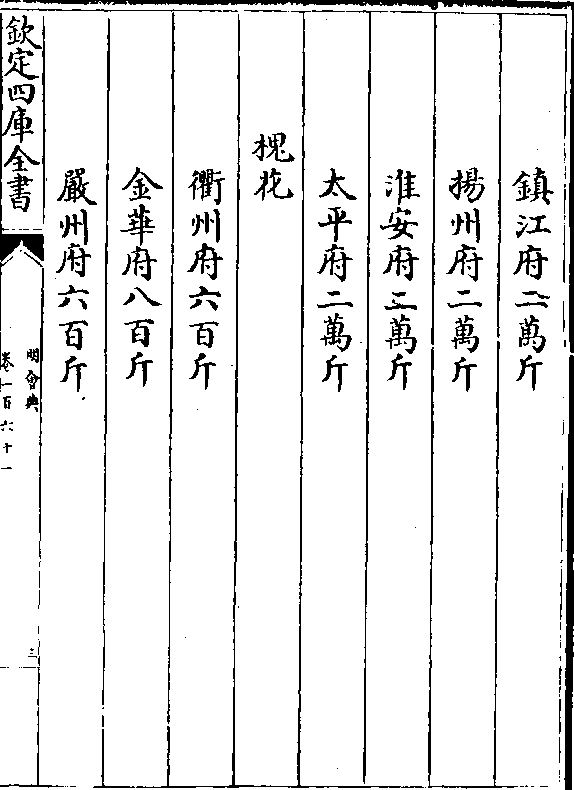 鎮江府二萬斤
揚州府二萬斤
淮安府二萬斤
太平府二萬斤
槐花
衢州府六百斤
金華府八百斤
嚴州府六百斤
欽定四庫全書
明會典
卷一百六十一
三